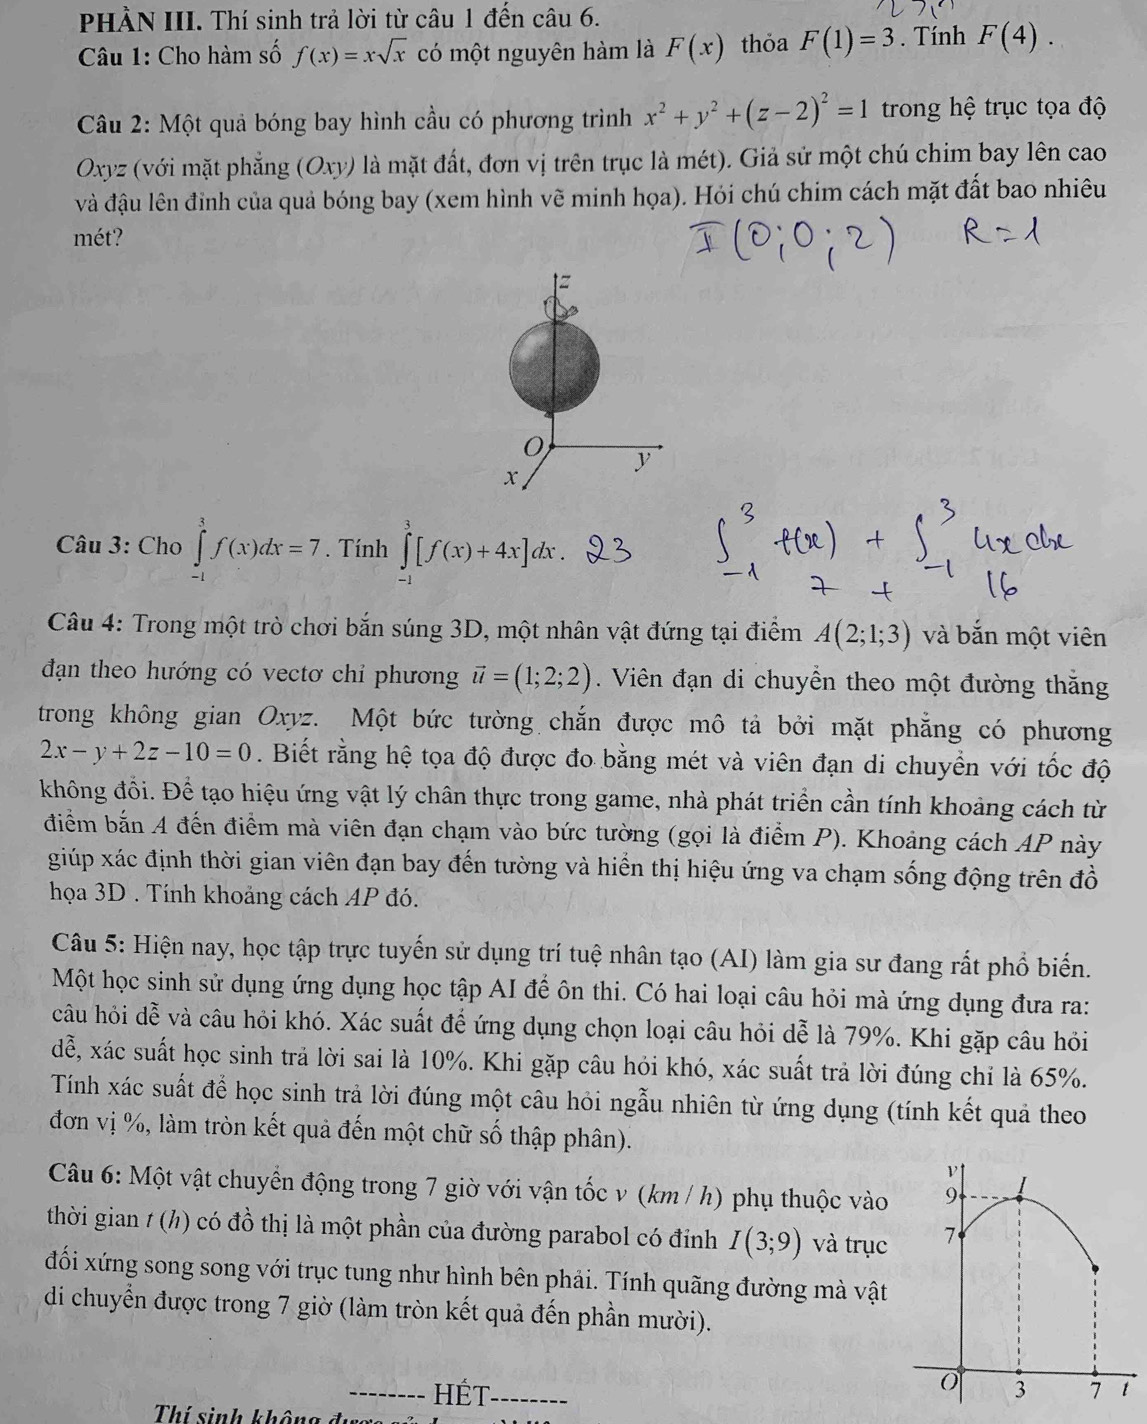 PHẦN III. Thí sinh trả lời từ câu 1 đến câu 6.
Câu 1: Cho hàm số f(x) = x√x có một nguyên hàm là F(x) thỏa F(1) = 3. Tính F(4).
Câu 2: Một quả bóng bay hình cầu có phương trình x² + y² + (z − 2)² = 1 trong hệ trục tọa độ
Oxyz (với mặt phẳng (Oxy) là mặt đất, đơn vị trên trục là mét). Giả sử một chú chim bay lên cao
và đậu lên đỉnh của quả bóng bay (xem hình vẽ minh họa). Hỏi chú chim cách mặt đất bao nhiêu
mét?
I(0;0;2) R=1
z
O
y
x
Câu 3: Cho ∫₋₁³ f(x)dx = 7. Tính ∫₋₁³ [f(x) + 4x]dx. 23
∫₋₁³ f(x) + ∫₋₁³ 4x dx
7 + 16
Câu 4: Trong một trò chơi bắn súng 3D, một nhân vật đứng tại điểm A(2;1;3) và bắn một viên
đạn theo hướng có vectơ chỉ phương u⃗ = (1;2;2). Viên đạn di chuyển theo một đường thẳng
trong không gian Oxyz. Một bức tường chắn được mô tả bởi mặt phẳng có phương
2x − y + 2z − 10 = 0. Biết rằng hệ tọa độ được đo bằng mét và viên đạn di chuyển với tốc độ
không đổi. Để tạo hiệu ứng vật lý chân thực trong game, nhà phát triển cần tính khoảng cách từ
điểm bắn A đến điểm mà viên đạn chạm vào bức tường (gọi là điểm P). Khoảng cách AP này
giúp xác định thời gian viên đạn bay đến tường và hiển thị hiệu ứng va chạm sống động trên đồ
họa 3D . Tính khoảng cách AP đó.
Câu 5: Hiện nay, học tập trực tuyến sử dụng trí tuệ nhân tạo (AI) làm gia sư đang rất phổ biến.
Một học sinh sử dụng ứng dụng học tập AI để ôn thi. Có hai loại câu hỏi mà ứng dụng đưa ra:
câu hỏi dễ và câu hỏi khó. Xác suất để ứng dụng chọn loại câu hỏi dễ là 79%. Khi gặp câu hỏi
dễ, xác suất học sinh trả lời sai là 10%. Khi gặp câu hỏi khó, xác suất trả lời đúng chỉ là 65%.
Tính xác suất để học sinh trả lời đúng một câu hỏi ngẫu nhiên từ ứng dụng (tính kết quả theo
đơn vị %, làm tròn kết quả đến một chữ số thập phân).
Câu 6: Một vật chuyển động trong 7 giờ với vận tốc v (km / h) phụ thuộc vào
thời gian t (h) có đồ thị là một phần của đường parabol có đỉnh I(3;9) và trục
đối xứng song song với trục tung như hình bên phải. Tính quãng đường mà vật
di chuyển được trong 7 giờ (làm tròn kết quả đến phần mười).
v
I
9
7
O 3 7 t
-------- HẾT--------
Thí sinh không được